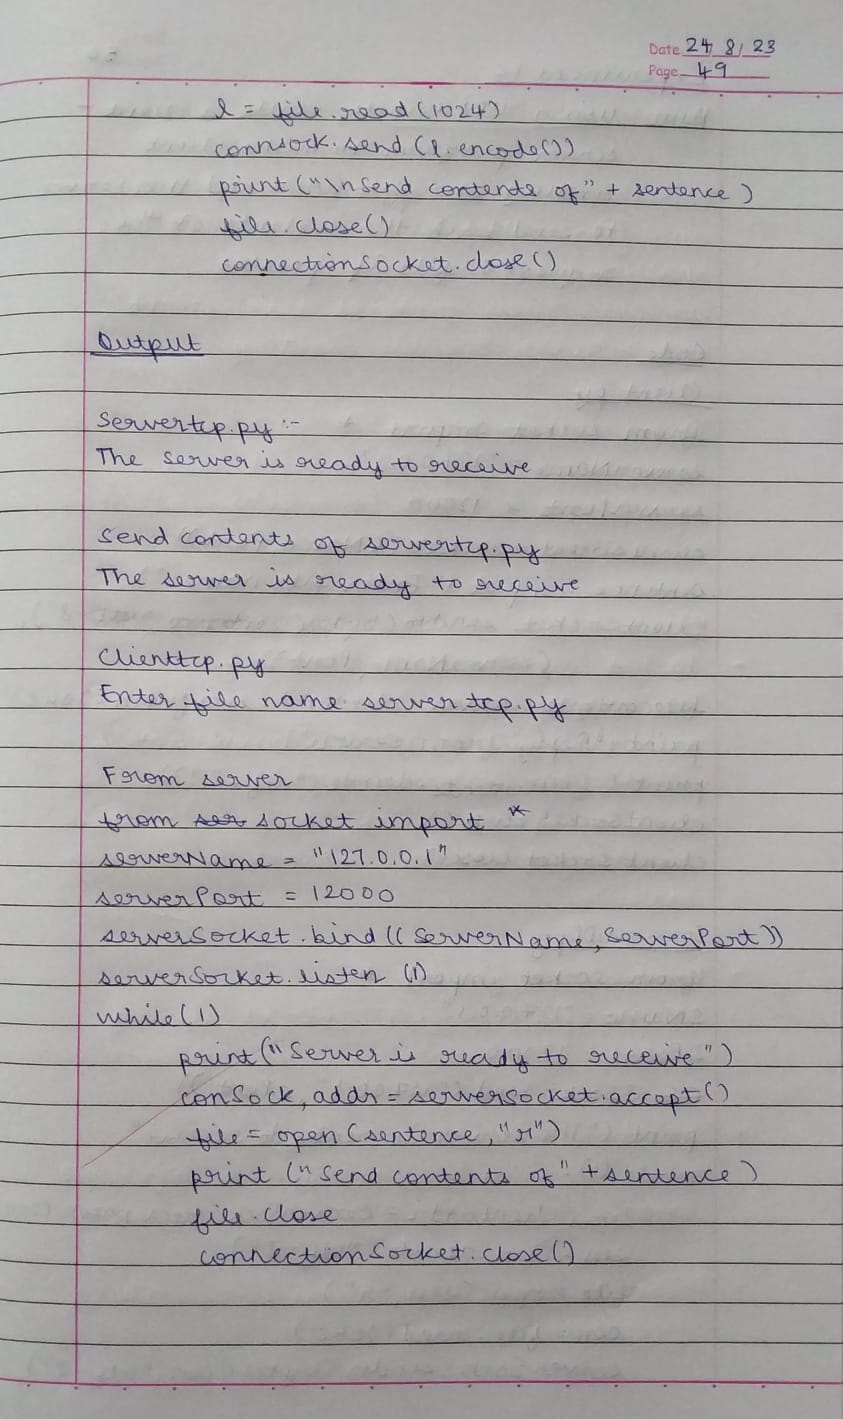 Date 24/ 8/ 23
Page 49
l = file.read(1024)
connsock.send(l.encode())
print("\nSend contents of" + sentence)
file.close()
connectionSocket.close()
Output
Servertcp.py :-
The server is ready to receive
Send contents of servertcp.py
The server is ready to receive
Clienttcp.py
Enter file name server tcp.py
From server
from ser socket import *
serverName = "127.0.0.1"
serverPort = 12000
serverSocket.bind((ServerName, ServerPort))
serverSocket.listen (1)
while(1)
print("Server is ready to receive")
conSock, addr = serverSocket.accept()
file = open(sentence,"r")
print ("Send contents of" + sentence)
file.close
connectionSocket.close()